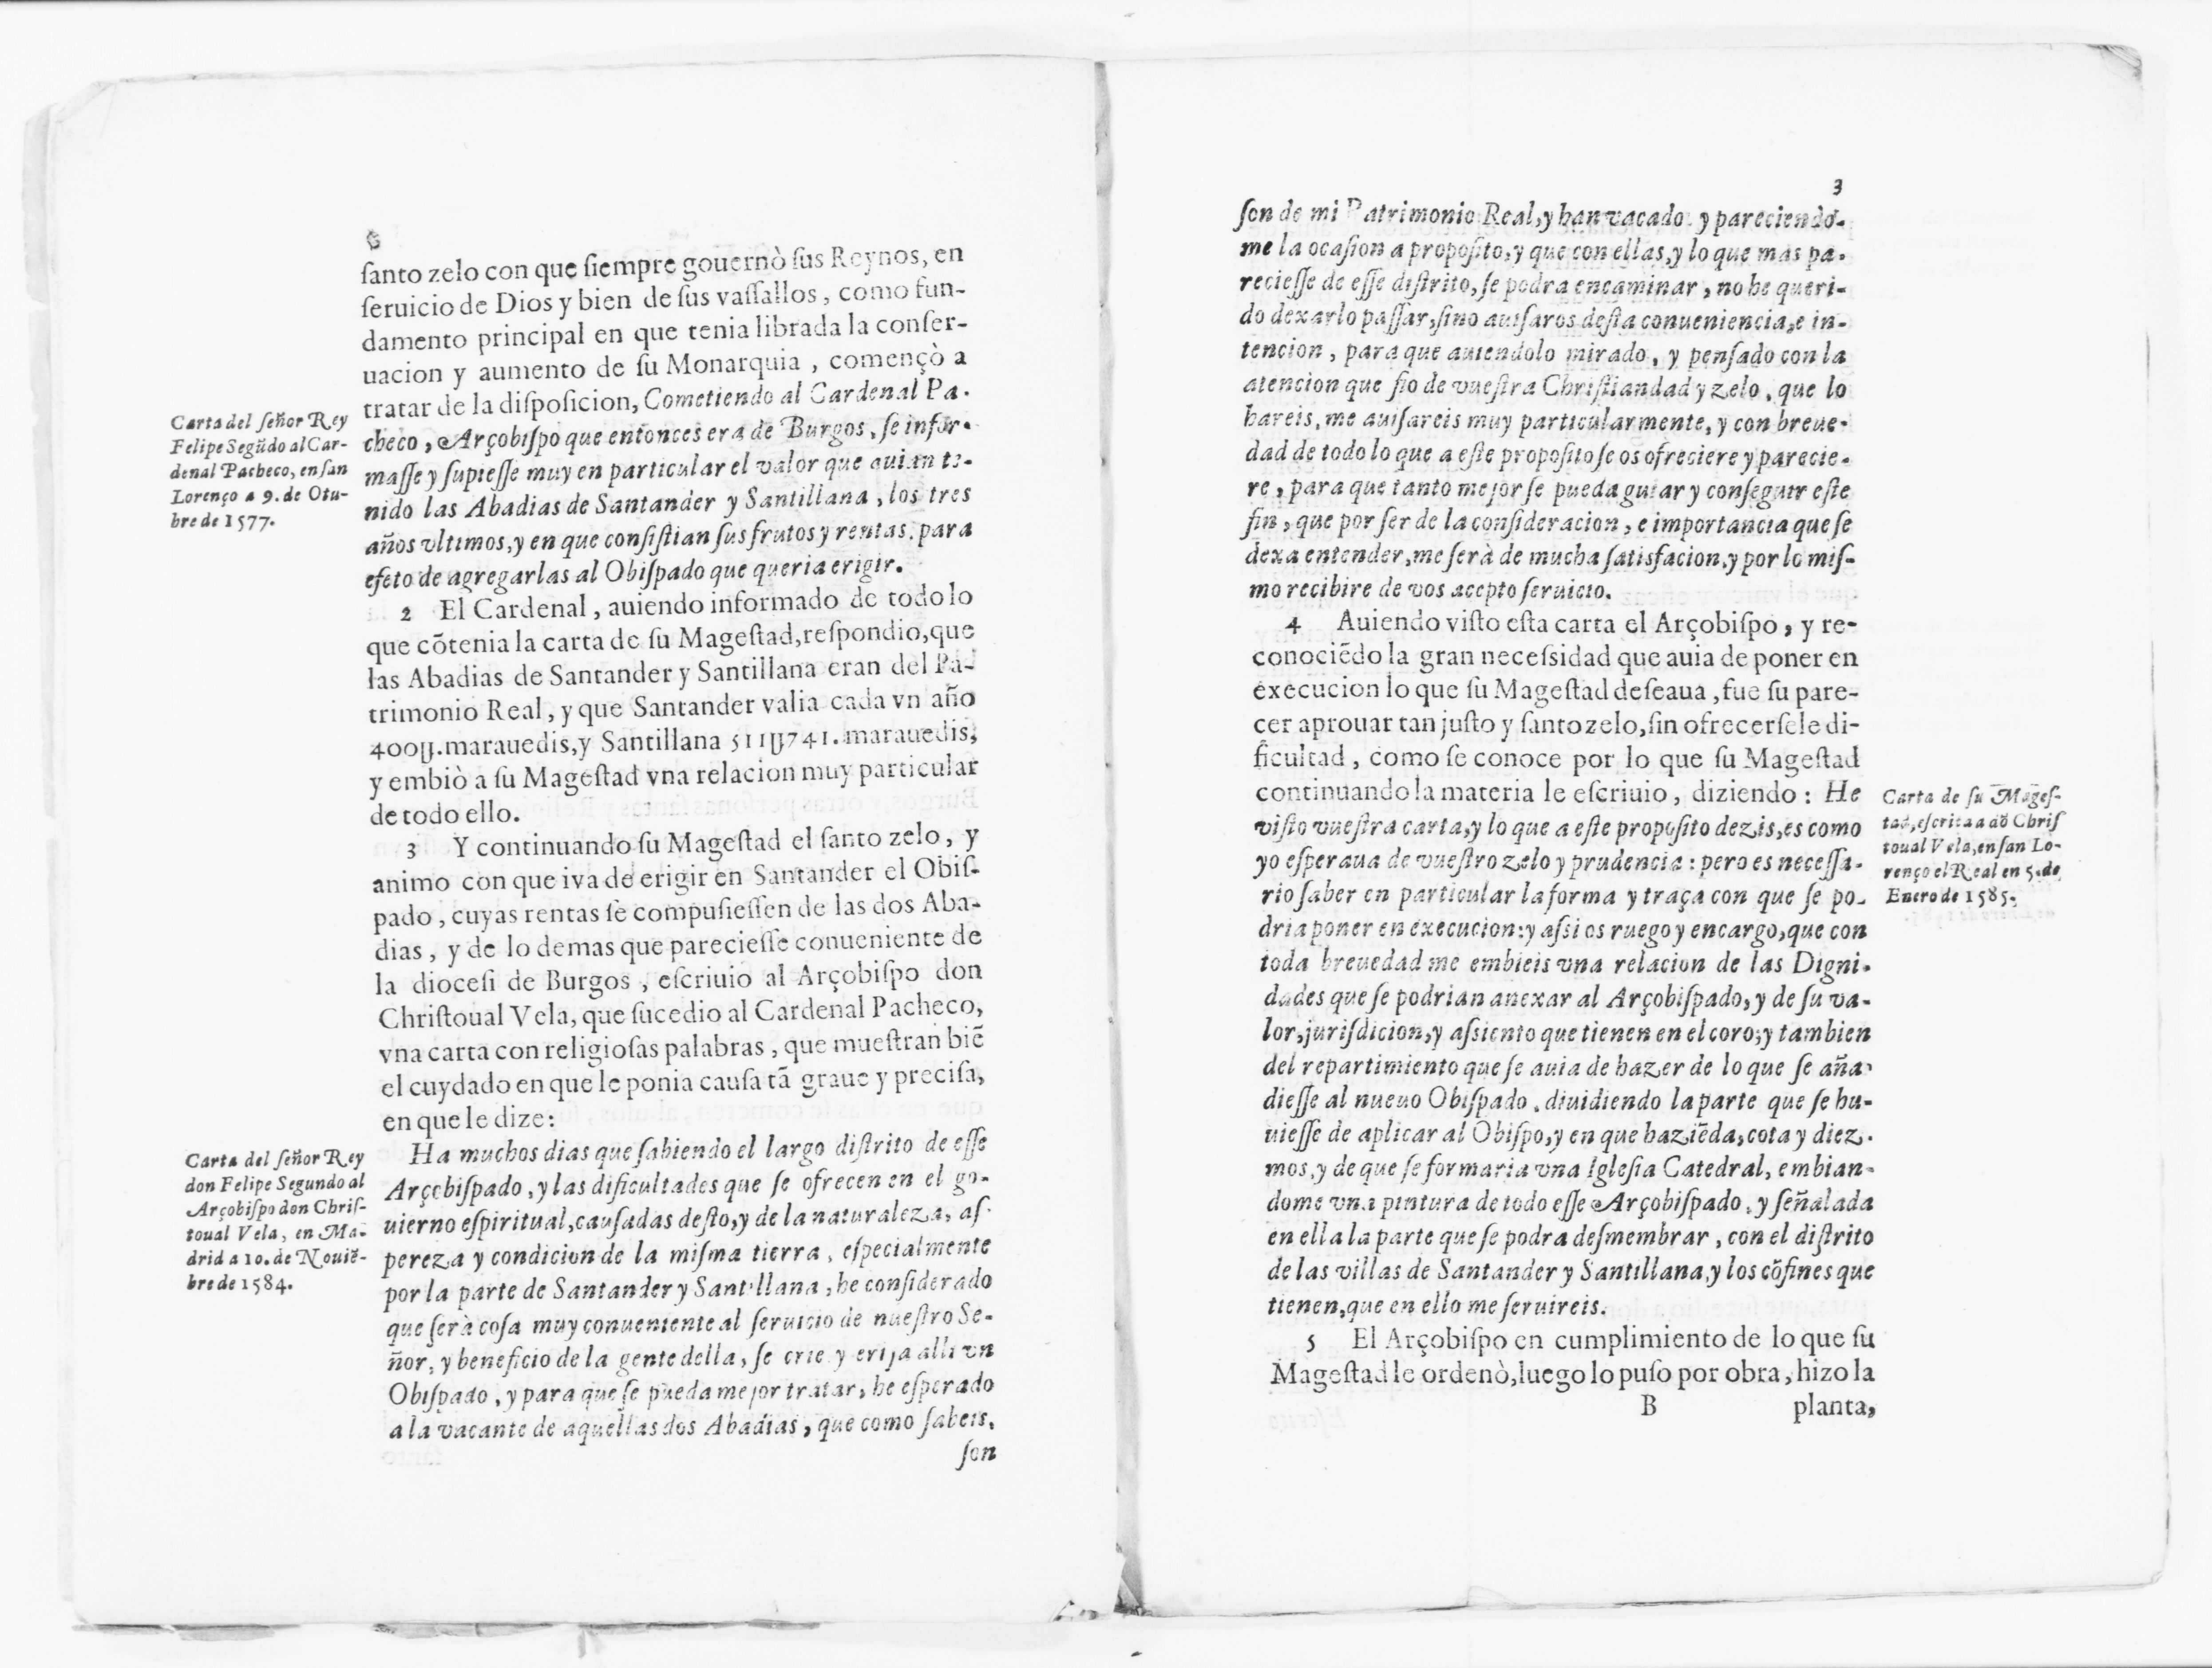 santo zelo con que siempre gouernò sus Reynos, en
seruicio de Dios y bien de sus vassallos, como fun-
damento principal en que tenia librada la conser-
uacion y aumento de su Monarquia, començò a
tratar de la disposicion, Cometiendo al Cardenal Pa-
checo, Arçobispo que entonces era de Burgos, se infor-
masse y supiesse muy en particular el valor que auian te-
nido las Abadias de Santander y Santillana, los tres
años vltimos, y en que consistian sus frutos y rentas, para
efeto de agregarlas al Obispado que queria erigir.
Carta del señor Rey
Felipe Segūdo al Car-
denal Pacheco, en san
Lorenço a 9. de Otu-
bre de 1577.
2 El Cardenal, auiendo informado de todo lo
que cōtenia la carta de su Magestad, respondio, que
las Abadias de Santander y Santillana eran del Pa-
trimonio Real, y que Santander valia cada vn año
400U. marauedis, y Santillana 511U741. marauedis,
y embiò a su Magestad vna relacion muy particular
de todo ello.
3 Y continuando su Magestad el santo zelo, y
animo con que iva de erigir en Santander el Obis-
pado, cuyas rentas se compusiessen de las dos Aba-
dias, y de lo demas que pareciesse conueniente de
la diocesi de Burgos, escriuio al Arçobispo don
Christoual Vela, que sucedio al Cardenal Pacheco,
vna carta con religiosas palabras, que muestran biē
el cuydado en que le ponia causa tā graue y precisa,
en que le dize:
Ha muchos dias que sabiendo el largo distrito de esse
Arçobispado, y las dificultades que se ofrecen en el go-
uierno espiritual, causadas desto, y de la naturaleza, as-
pereza y condicion de la misma tierra, especialmente
por la parte de Santander y Santillana, he considerado
que serà cosa muy conueniente al seruicio de nuestro Se-
ñor, y beneficio de la gente della, se crie y erija alli vn
Obispado, y para que se pueda mejor tratar, he esperado
a la vacante de aquellas dos Abadias, que como sabeis,
son
Carta del señor Rey
don Felipe Segundo al
Arçobispo don Chris-
toual Vela, en Ma-
drid a 10. de Nouiē-
bre de 1584.
3
son de mi Patrimonio Real, y han vacado y pareciendo-
me la ocasion a proposito, y que con ellas, y lo que mas pa-
reciesse de esse distrito, se podra encaminar, no he queri-
do dexarlo passar, sino auisaros desta conueniencia, e in-
tencion, para que auiendolo mirado, y pensado con la
atencion que fio de vuestra Christiandad y zelo, que lo
hareis, me auisareis muy particularmente, y con breue-
dad de todo lo que a este proposito se os ofreciere y parecie-
re, para que tanto mejor se pueda guiar y conseguir este
fin, que por ser de la consideracion, e importancia que se
dexa entender, me serà de mucha satisfacion, y por lo mis-
mo recibire de vos acepto seruicio.
4 Auiendo visto esta carta el Arçobispo, y re-
conociēdo la gran necessidad que auia de poner en
execucion lo que su Magestad deseaua, fue su pare-
cer aprouar tan justo y santo zelo, sin ofrecersele di-
ficultad, como se conoce por lo que su Magestad
continuando la materia le escriuio, diziendo: He
visto vuestra carta, y lo que a este proposito dezis, es como
yo esperaua de vuestro zelo y prudencia: pero es necessa-
rio saber en particular la forma y traça con que se po-
dria poner en execucion: y assi os ruego y encargo, que con
toda breuedad me embieis vna relacion de las Digni-
dades que se podrian anexar al Arçobispado, y de su va-
lor, jurisdicion, y assiento que tienen en el coro; y tambien
del repartimiento que se auia de hazer de lo que se aña-
diesse al nueuo Obispado, diuidiendo la parte que se hu-
uiesse de aplicar al Obispo, y en que haziēda, cota y diez-
mos, y de que se formaria vna Iglesia Catedral, embian-
dome vna pintura de todo esse Arçobispado, y señalada
en ella la parte que se podra desmembrar, con el distrito
de las villas de Santander y Santillana, y los cōfines que
tienen, que en ello me seruireis.
Carta de su Mages-
tad, escrita a dō Chris
toual Vela, en san Lo-
renço el Real en 5. de
Enero de 1585.
5 El Arçobispo en cumplimiento de lo que su
Magestad le ordenò, luego lo puso por obra, hizo la
B planta,